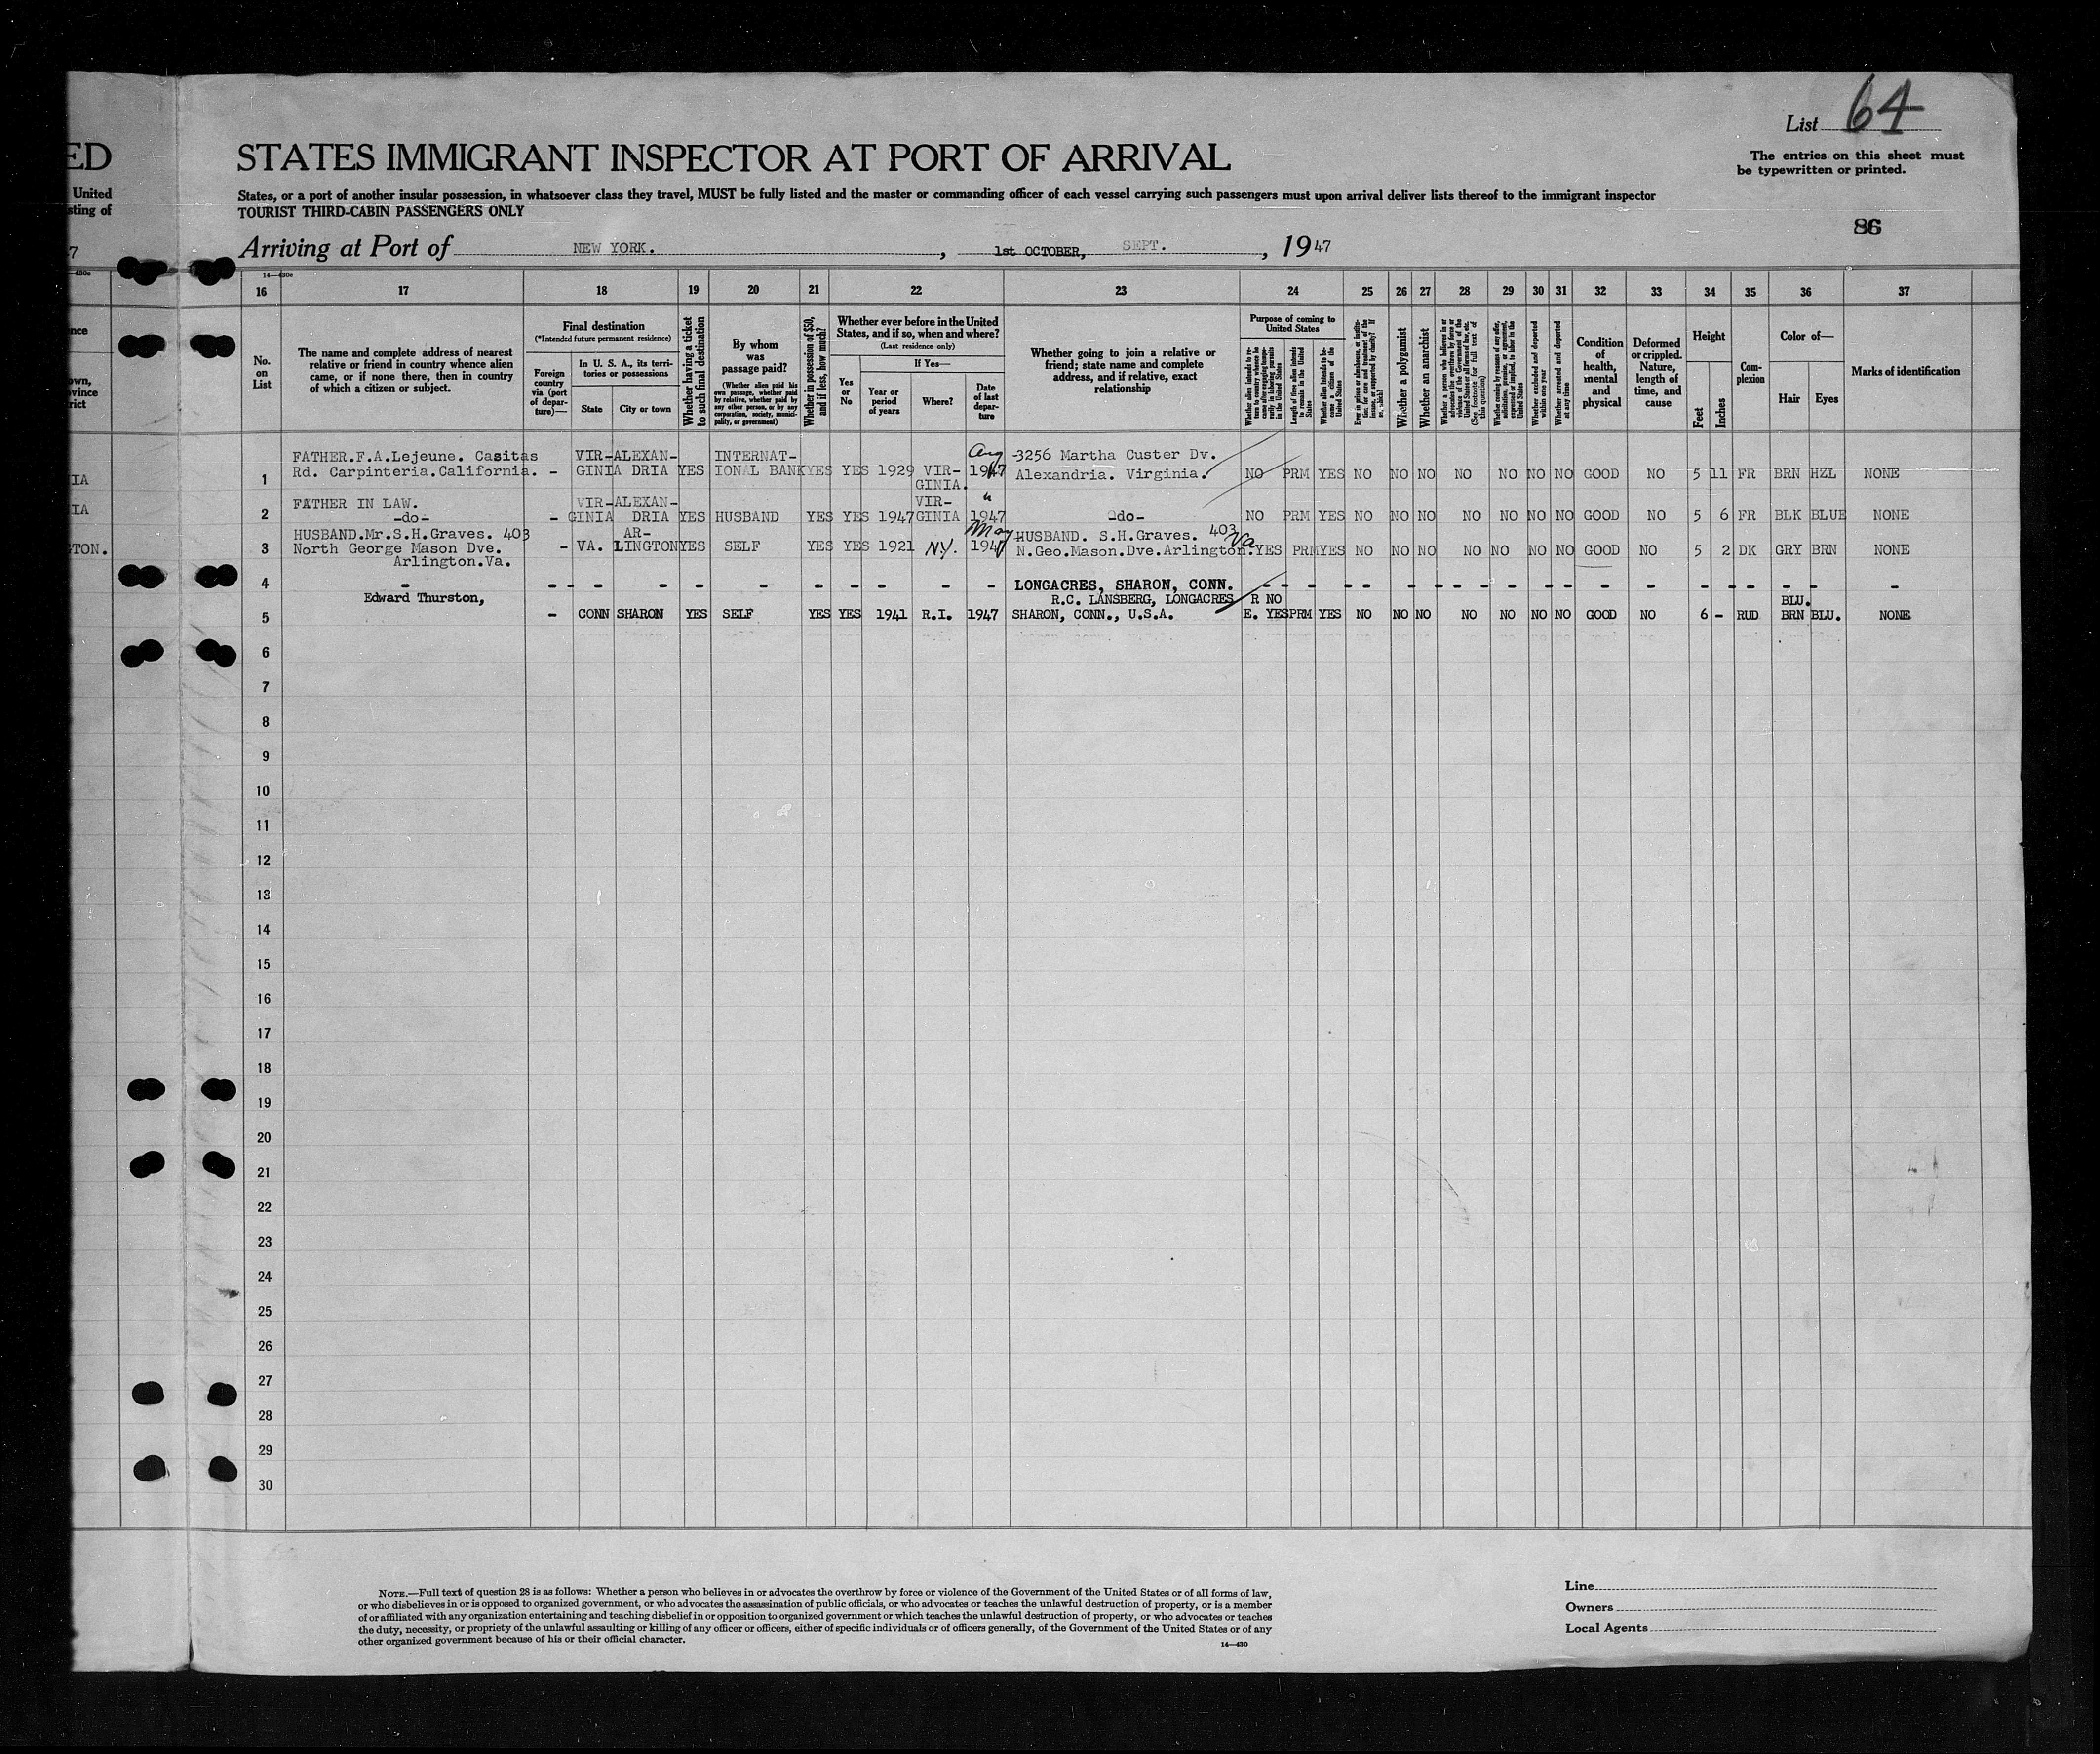 List 64
The entries on this sheet must
be typewritten or printed.
ED
STATES IMMIGRANT INSPECTOR AT PORT OF ARRIVAL
United
sting of
States, or a port of another insular possession, in whatsoever class they travel, MUST be fully listed and the master or commanding officer of each vessel carrying such passengers must upon arrival deliver lists thereof to the immigrant inspector
TOURIST THIRD-CABIN PASSENGERS ONLY
86
Arriving at Port of NEW YORK. , 1st OCTOBER, SEPT. , 1947
14—430e
16 17 18 19 20 21 22 23 24 25 26 27 28 29 30 31 32 33 34 35 36 37
No. on List
The name and complete address of nearest relative or friend in country whence alien came, or if none there, then in country of which a citizen or subject.
Final destination
(*Intended future permanent residence)
Foreign country via (port of departure)—
In U. S. A., its territories or possessions
State
City or town
Whether having a ticket to such final destination
By whom was passage paid?
(Whether alien paid his own passage, whether paid by relative, whether paid by any other person, or by any corporation, society, municipality, or government)
Whether in possession of $50, and if less, how much?
Whether ever before in the United States, and if so, when and where?
(Last residence only)
Yes or No
If Yes—
Year or period of years
Where?
Date of last departure
Whether going to join a relative or friend; state name and complete address, and if relative, exact relationship
Purpose of coming to United States
Length of time alien intends to remain in the United States
Whether alien intends to become a citizen of the United States
Whether a polygamist
Whether an anarchist
Whether excluded and deported within one year
Whether arrested and deported at any time
Condition of health, mental and physical
Deformed or crippled. Nature, length of time, and cause
Height
Feet
Inches
Complexion
Color of—
Hair
Eyes
Marks of identification
IA
1 FATHER.F.A.Lejeune. Casitas Rd. Carpinteria.California. - VIR-GINIA ALEXAN-DRIA YES INTERNAT-IONAL BANK YES YES 1929 VIR-GINIA. Aug 1947 -3256 Martha Custer Dv. Alexandria. Virginia. NO PRM YES NO NO NO NO NO NO NO GOOD NO 5 11 FR BRN HZL NONE
IA
2 FATHER IN LAW. -do- - VIR-GINIA ALEXAN-DRIA YES HUSBAND YES YES 1947 VIR-GINIA " 1947 -do- NO PRM YES NO NO NO NO NO NO NO GOOD NO 5 6 FR BLK BLUE NONE
TON.
3 HUSBAND.Mr.S.H.Graves. 403 North George Mason Dve. Arlington.Va. - VA. AR-LINGTON YES SELF YES YES 1921 N.Y. May 1947 HUSBAND. S.H.Graves. 403 N.Geo.Mason.Dve.Arlington. Va YES PRM YES NO NO NO NO NO NO NO GOOD NO 5 2 DK GRY BRN NONE
4 - - - - - - - - - - - LONGACRES, SHARON, CONN. - - - - - - - - - - - - - - - - - -
5 Edward Thurston, - CONN SHARON YES SELF YES YES 1941 R.I. 1947 R.C. LANSBERG, LONGACRES SHARON, CONN., U.S.A. R NO E. YES PRM YES NO NO NO NO NO NO NO GOOD NO 6 - RUD BLU. BRN BLU. NONE
6
7
8
9
10
11
12
13
14
15
16
17
18
19
20
21
22
23
24
25
26
27
28
29
30
NOTE.—Full text of question 28 is as follows: Whether a person who believes in or advocates the overthrow by force or violence of the Government of the United States or of all forms of law,
or who disbelieves in or is opposed to organized government, or who advocates the assassination of public officials, or who advocates or teaches the unlawful destruction of property, or is a member
of or affiliated with any organization entertaining and teaching disbelief in or opposition to organized government or which teaches the unlawful destruction of property, or who advocates or teaches
the duty, necessity, or propriety of the unlawful assaulting or killing of any officer or officers, either of specific individuals or of officers generally, of the Government of the United States or of any
other organized government because of his or their official character.
14—430
Line
Owners
Local Agents